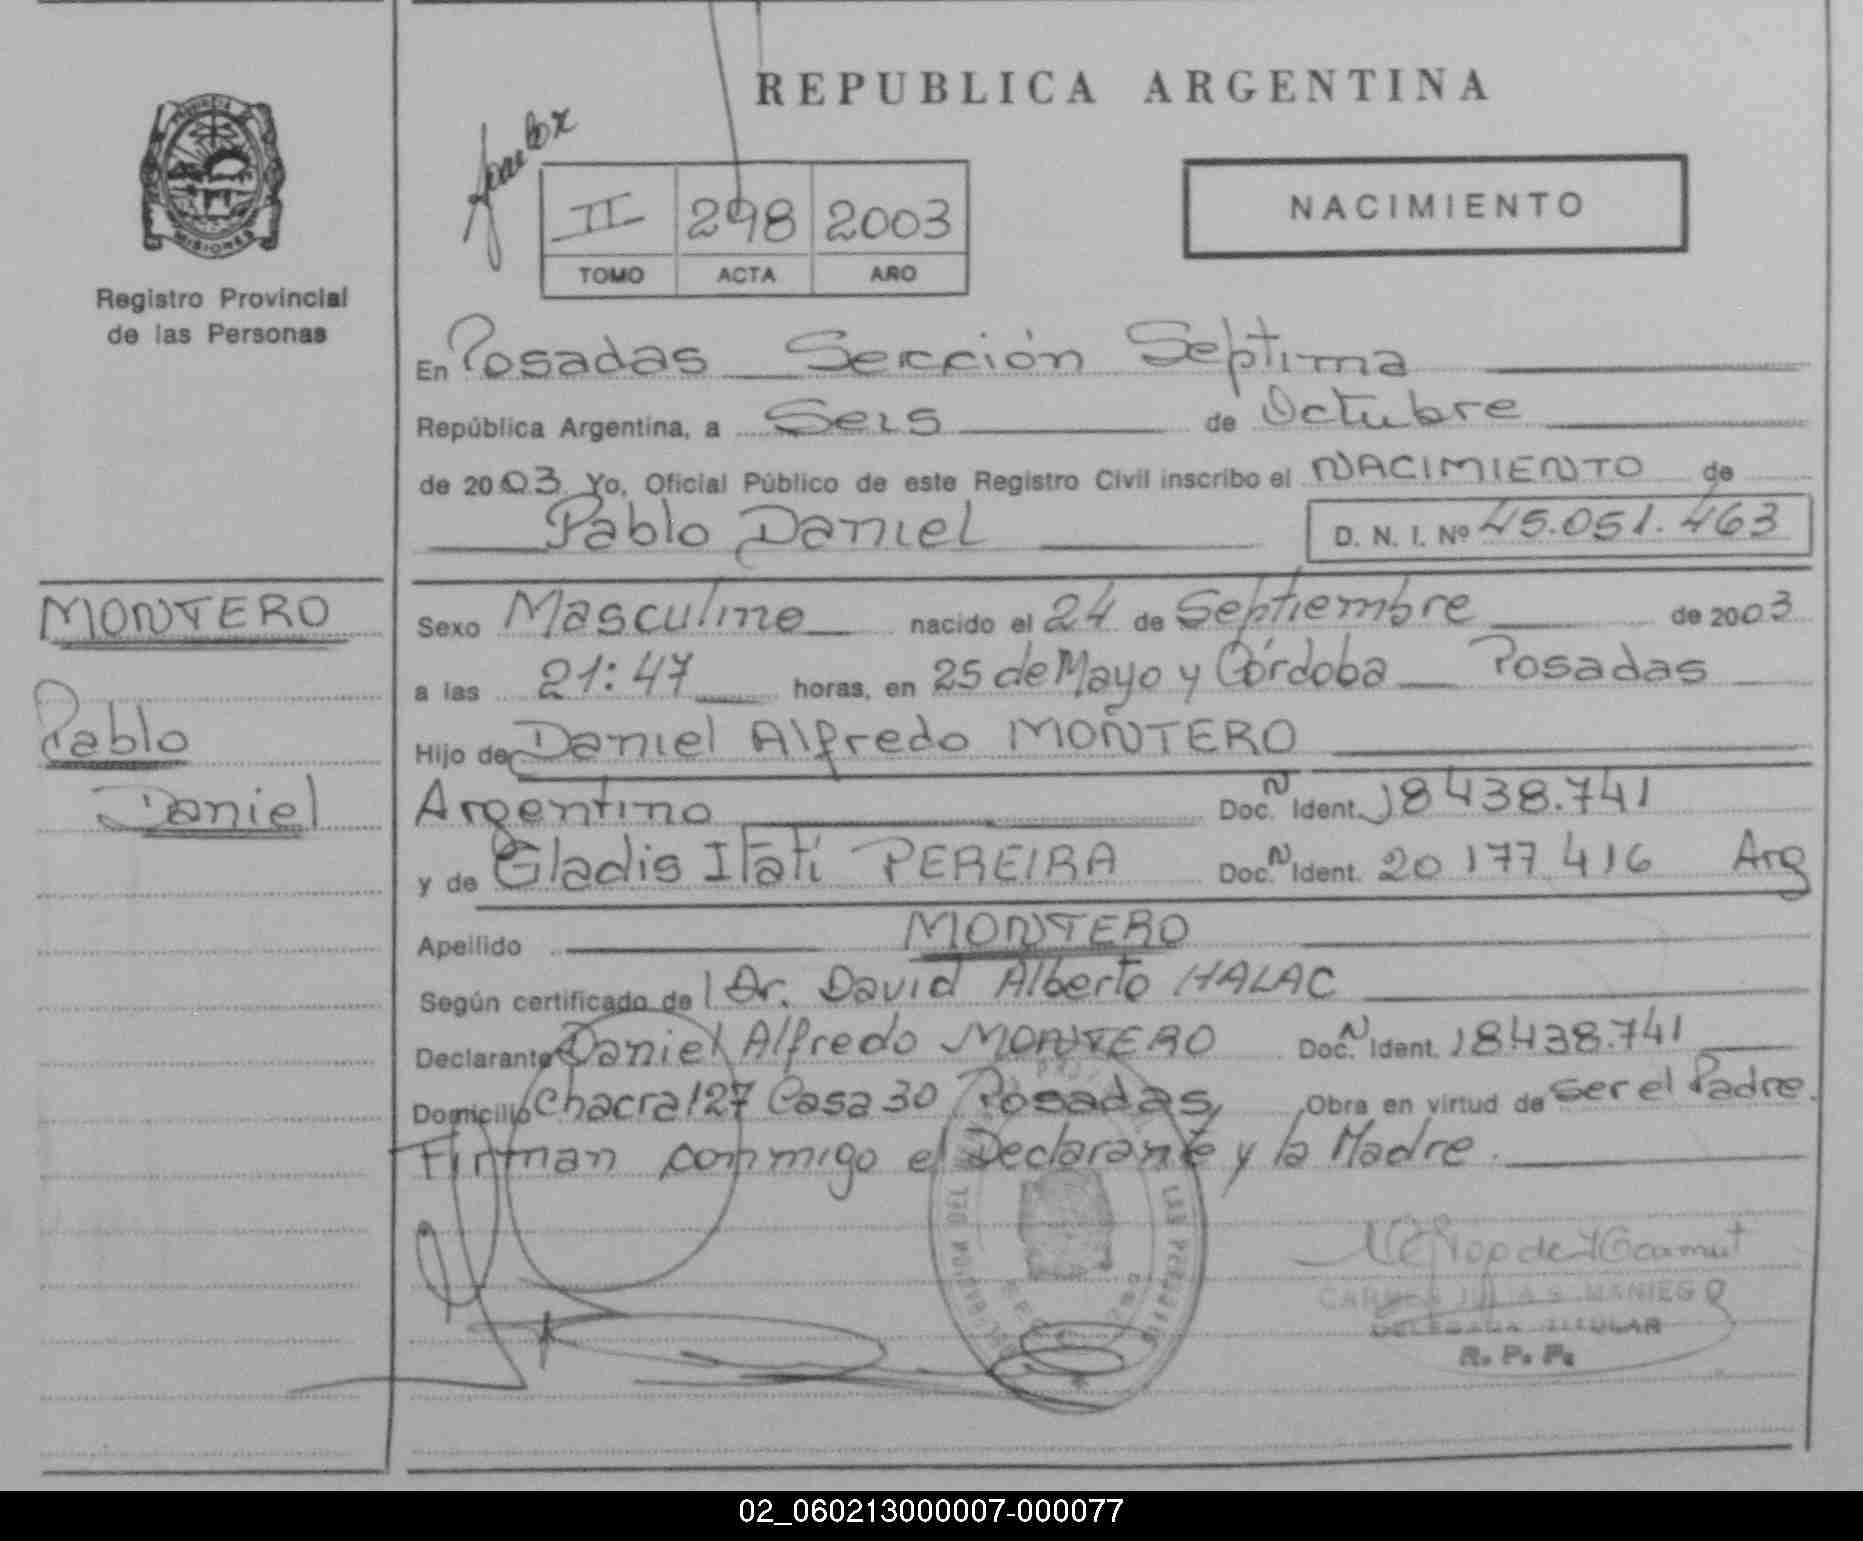 REPUBLICA ARGENTINA
PROVINCIA
MISIONES
Registro Provincial
de las Personas
II 298 2003
TOMO ACTA AÑO
NACIMIENTO
En Posadas Sección Septima
República Argentina, a Seis de Octubre
de 2003 Yo, Oficial Público de este Registro Civil inscribo el NACIMIENTO de
Pablo Daniel D. N. I. Nº 45.051.463
MONTERO
Pablo
Daniel
Sexo Masculino nacido el 24 de Septiembre de 2003
a las 21:47 horas, en 25 de Mayo y Córdoba Posadas
Hijo de Daniel Alfredo MONTERO
Argentino Doc. N Ident. 18438.741
y de Gladis Itatí PEREIRA Doc. N Ident. 20 177 416 Arg
Apellido MONTERO
Según certificado de Dr. David Alberto HALAC
Declarante Daniel Alfredo MONTERO Doc. N Ident. 18438.741
Domicilio Chacra 127 Casa 30 Posadas, Obra en virtud de ser el Padre.
Firman conmigo el Declarante y la Madre.
DELEGADA TITULAR
R. P. P.
02_060213000007-000077